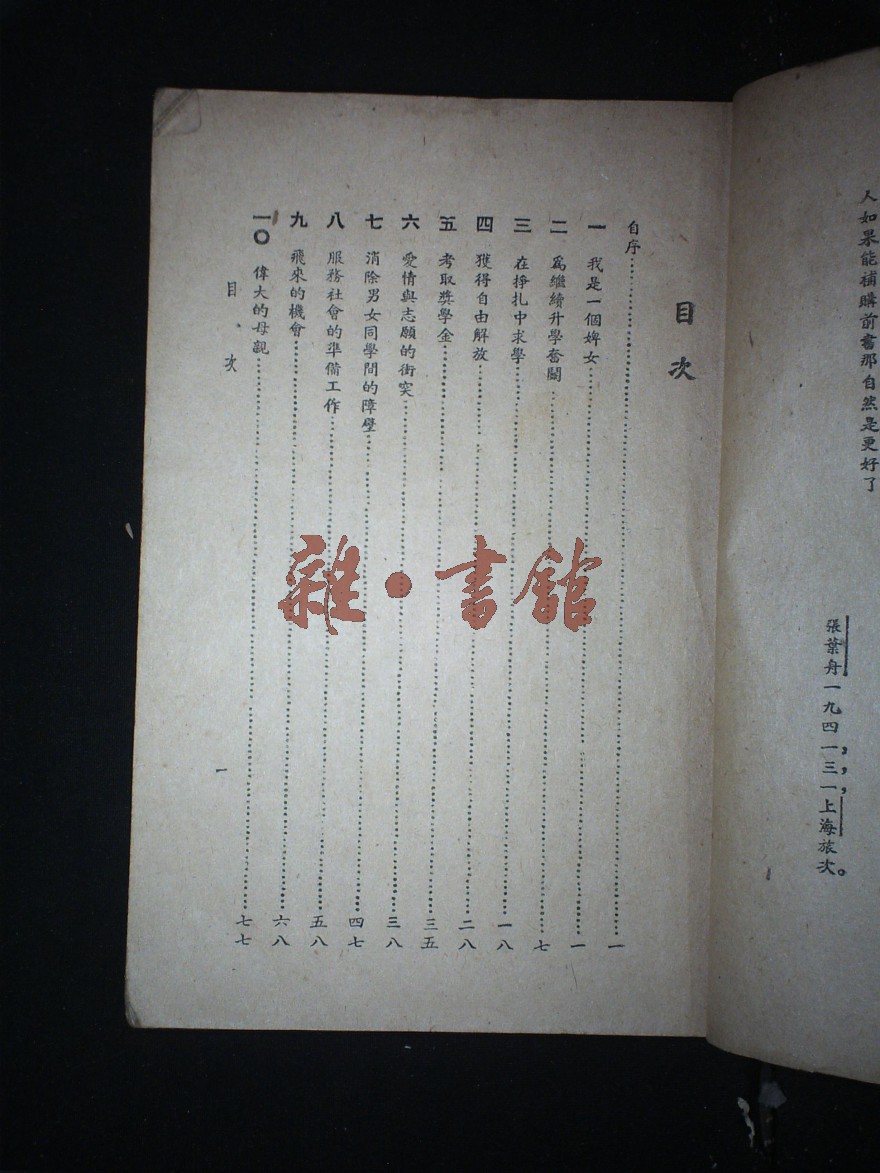 人如果能補購前書那自然是更好了
張葉舟一九四一，三，一，上海旅次。
目次
自序……一
一 我是一個婢女……一
二 爲繼續升學奮鬭……七
三 在掙扎中求學……一八
四 獲得自由解放……二八
五 考取獎學金……三五
六 愛情與志願的衝突……三八
七 消除男女同學間的障壁……四七
八 服務社會的準備工作……五八
九 飛來的機會……六八
一〇 偉大的母親……七七
目次 一
雜·書館